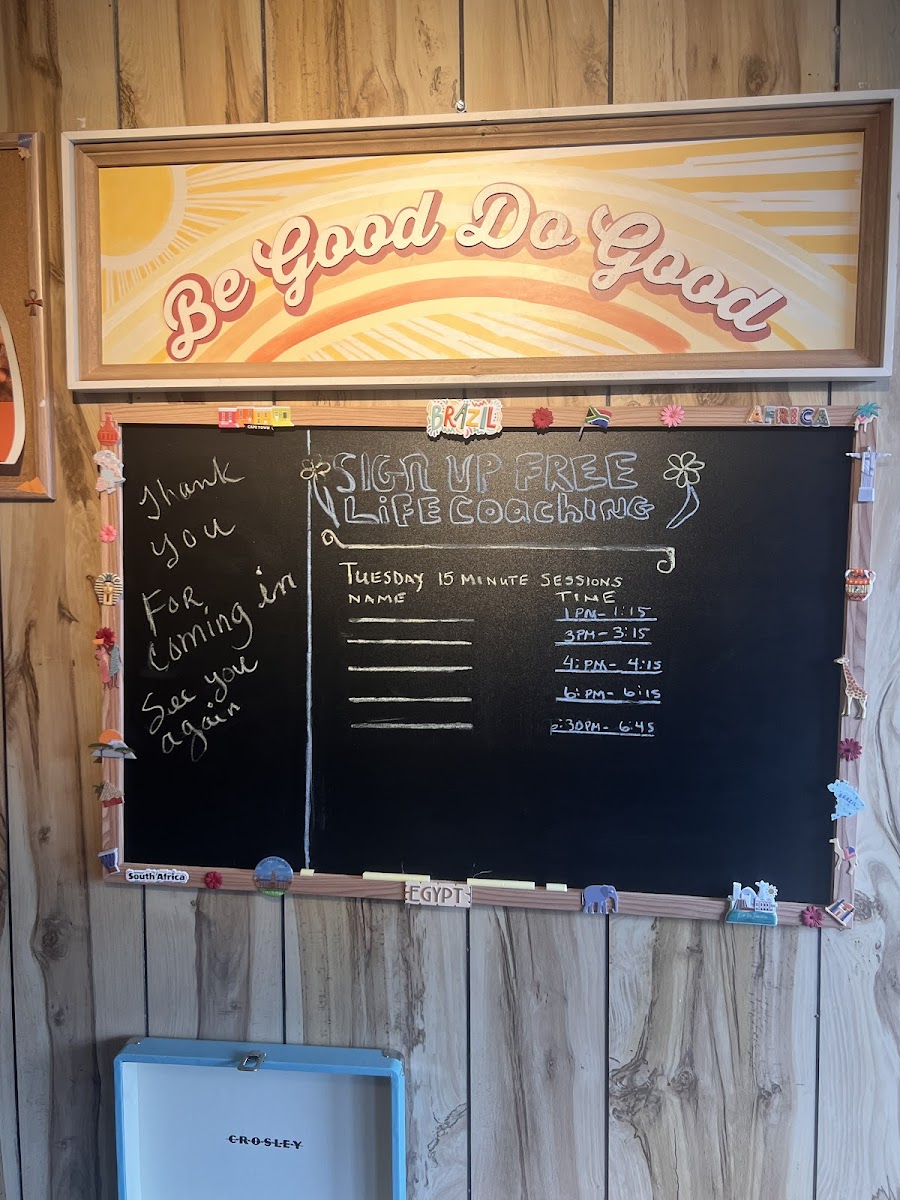 Be Good Do Good
CAPE TOWN
BRAZIL
AFRICA
Thank
you
FOR
coming in
See you
again
SIGN UP FREE
LIFE COACHING
TUESDAY 15 MINUTE SESSIONS
NAME TIME
1PM- 1:15
3PM- 3:15
4:PM- 4:15
6:PM- 6:15
:30PM- 6:45
BRAZIL
South Africa
EGYPT
CROSLEY